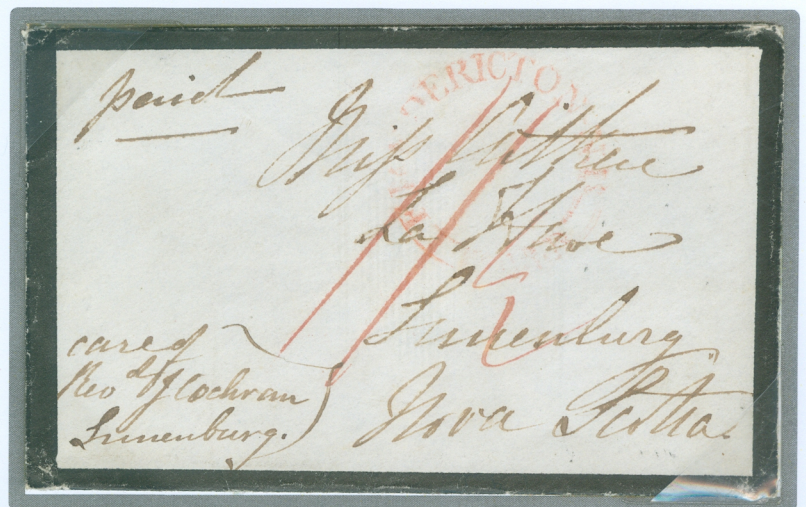 paid
FREDERICTON
Miss
La Have
Lunenburg
Nova Scotia
care of
Revd J Cochran
Lunenburg.